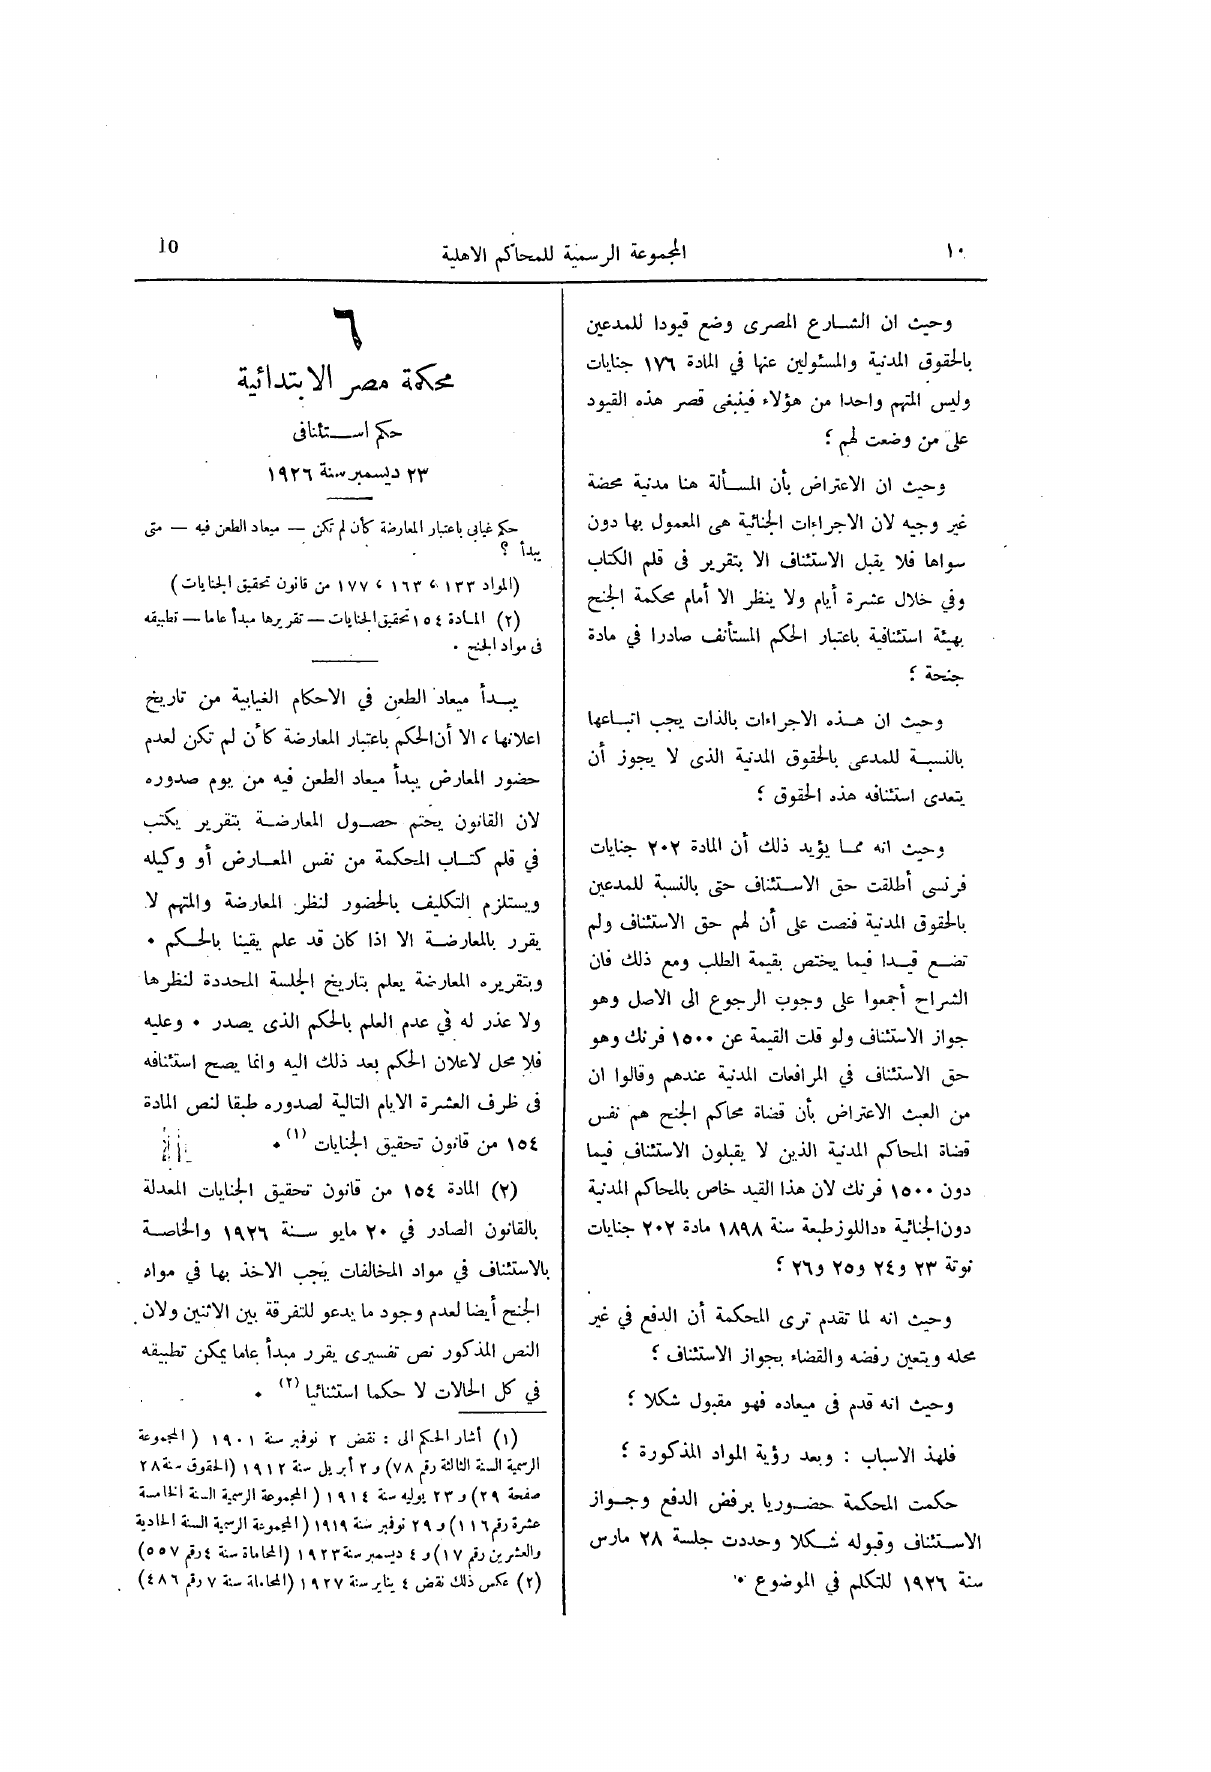 ١٠
المجموعة الرسمية للمحاكم الاهلية
10
وحيث ان الشارع المصرى وضع قيودا للمدعين
بالحقوق المدنية والمسئولين عنها في المادة ١٧٦ جنايات
وليس المتهم واحدا من هؤلاء فينبغى قصر هذه القيود
على من وضعت لهم ؛
وحيث ان الاعتراض بأن المسألة هنا مدنية محضة
غير وجيه لان الاجراءات الجنائية هى المعمول بها دون
سواها فلا يقبل الاستئناف الا بتقرير فى قلم الكتاب
وفي خلال عشرة أيام ولا ينظر الا أمام محكمة الجنح
بهيئة استئنافية باعتبار الحكم المستأنف صادرا في مادة
جنحة ؛
وحيث ان هذه الاجراءات بالذات يجب اتباعها
بالنسبة للمدعى بالحقوق المدنية الذى لا يجوز أن
يتعدى استئنافه هذه الحقوق ؛
وحيث انه مما يؤيد ذلك أن المادة ٢٠٢ جنايات
فرنسى أطلقت حق الاستئناف حتى بالنسبة للمدعين
بالحقوق المدنية فنصت على أن لهم حق الاستئناف ولم
تضع قيدا فيما يختص بقيمة الطلب ومع ذلك فان
الشراح أجمعوا على وجوب الرجوع الى الاصل وهو
جواز الاستئناف ولو قلت القيمة عن ١٥٠٠ فرنك وهو
حق الاستئناف في المرافعات المدنية عندهم وقالوا ان
من العبث الاعتراض بأن قضاة محاكم الجنح هم نفس
قضاة المحاكم المدنية الذين لا يقبلون الاستئناف فيما
دون ١٥٠٠ فرنك لان هذا القيد خاص بالمحاكم المدنية
دون الجنائية «داللوز طبعة سنة ١٨٩٨ مادة ٢٠٢ جنايات
نوتة ٢٣ و٢٤ و٢٥ و٢٦ ؛
وحيث انه لما تقدم ترى المحكمة أن الدفع في غير
محله ويتعين رفضه والقضاء بجواز الاستئناف ؛
وحيث انه قدم فى ميعاده فهو مقبول شكلا ؛
فلهذ الاسباب : وبعد رؤية المواد المذكورة ؛
حكمت المحكمة حضوريا برفض الدفع وجواز
الاستئناف وقبوله شكلا وحددت جلسة ٢٨ مارس
سنة ١٩٢٦ للتكلم في الموضوع .
٦
محكمة مصر الابتدائية
حكم استئنافى
٢٣ ديسمبر سنة ١٩٢٦
حكم غيابى باعتبار المعارضة كأن لم تكن — ميعاد الطعن فيه — متى
يبدأ ؟
(المواد ١٣٣ ، ١٦٣ ، ١٧٧ من قانون تحقيق الجنايات)
(٢) المادة ١٥٤ تحقيق الجنايات — تقريرها مبدأ عاما — تطبيقه
فى مواد الجنح .
يبدأ ميعاد الطعن في الاحكام الغيابية من تاريخ
اعلانها ، الا أن الحكم باعتبار المعارضة كأن لم تكن لعدم
حضور المعارض يبدأ ميعاد الطعن فيه من يوم صدوره
لان القانون يحتم حصول المعارضة بتقرير يكتب
في قلم كتاب المحكمة من نفس المعارض أو وكيله
ويستلزم التكليف بالحضور لنظر المعارضة والمتهم لا
يقرر بالمعارضة الا اذا كان قد علم يقينا بالحكم .
وبتقريره المعارضة يعلم بتاريخ الجلسة المحددة لنظرها
ولا عذر له في عدم العلم بالحكم الذى يصدر . وعليه
فلا محل لاعلان الحكم بعد ذلك اليه وانما يصح استئنافه
فى ظرف العشرة الايام التالية لصدوره طبقا لنص المادة
١٥٤ من قانون تحقيق الجنايات (١) .
(٢) المادة ١٥٤ من قانون تحقيق الجنايات المعدلة
بالقانون الصادر في ٢٠ مايو سنة ١٩٢٦ والخاصة
بالاستئناف في مواد المخالفات يجب الاخذ بها في مواد
الجنح أيضا لعدم وجود ما يدعو للتفرقة بين الاثنين ولان
النص المذكور نص تفسيرى يقرر مبدأ عاما يمكن تطبيقه
في كل الحالات لا حكما استثنائيا (٢) .
(١) أشار الحكم الى : نقض ٢ نوفبر سنة ١٩٠١ (المجموعة
الرسمية السنة الثالثة رقم ٧٨) و ٢ أبريل سنة ١٩١٢ (الحقوق سنة ٢٨
صفحة ٢٩) و ٢٣ يوليه سنة ١٩١٤ (المجموعة الرسمية السنة الخامسة
عشرة رقم ١١٦) و ٢٩ نوفبر سنة ١٩١٩ (المجموعة الرسمية السنة الحادية
والعشرين رقم ١٧) و ٤ ديسمبر سنة ١٩٢٣ (المحاماة سنة ٤ رقم ٥٥٧)
(٢) عكس ذلك نقض ٤ يناير سنة ١٩٢٧ (المحاماة سنة ٧ رقم ٤٨٦)